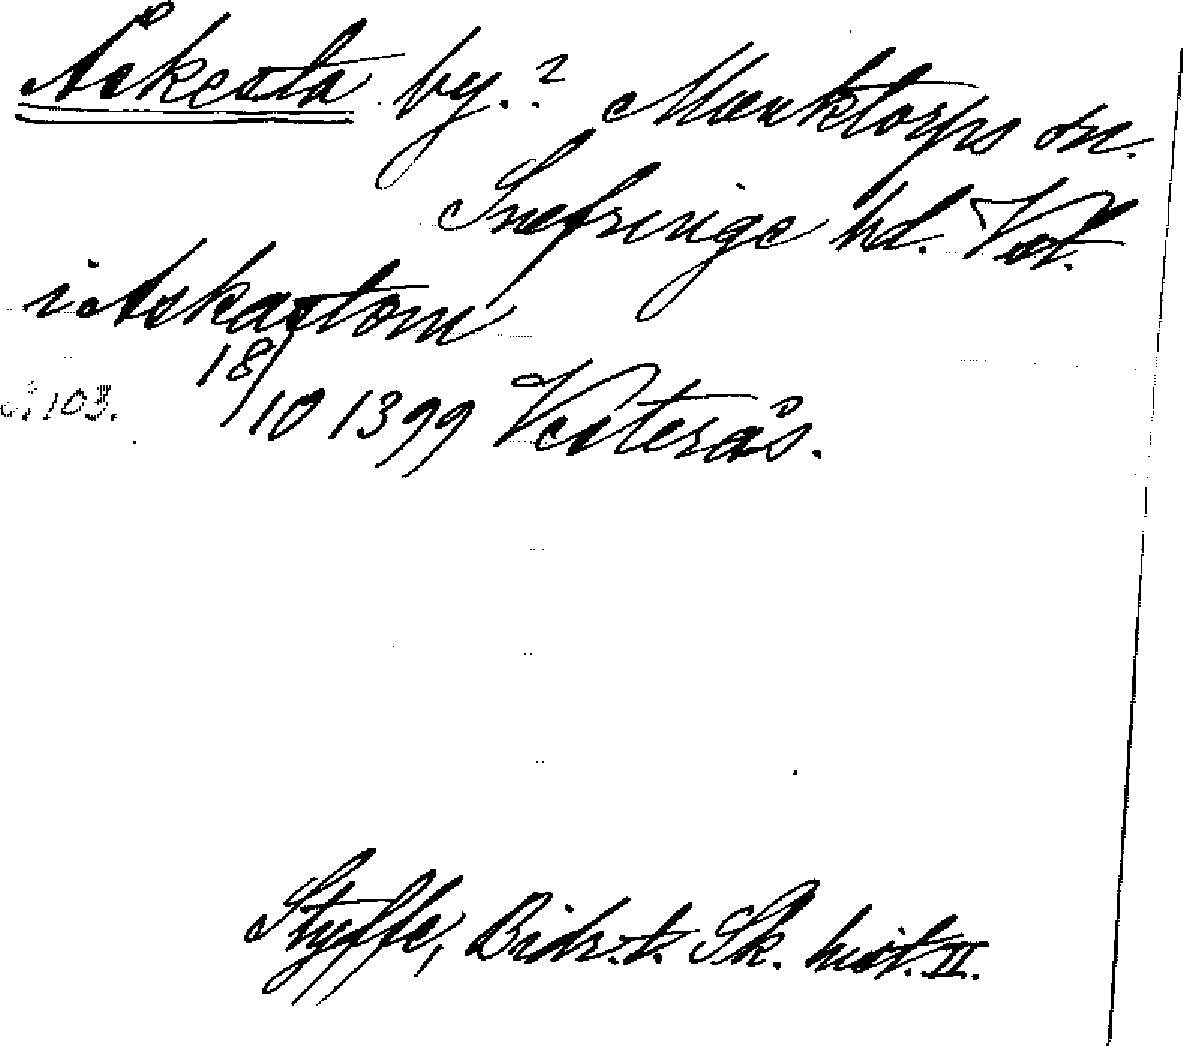 Åskesta by.? Munktorps sn.
Snefringe hd. Vst.
i Askastom
18/10 1399 Vesterås.
s. 103.
Styffe, Bidr. t. Sk. hist. II.